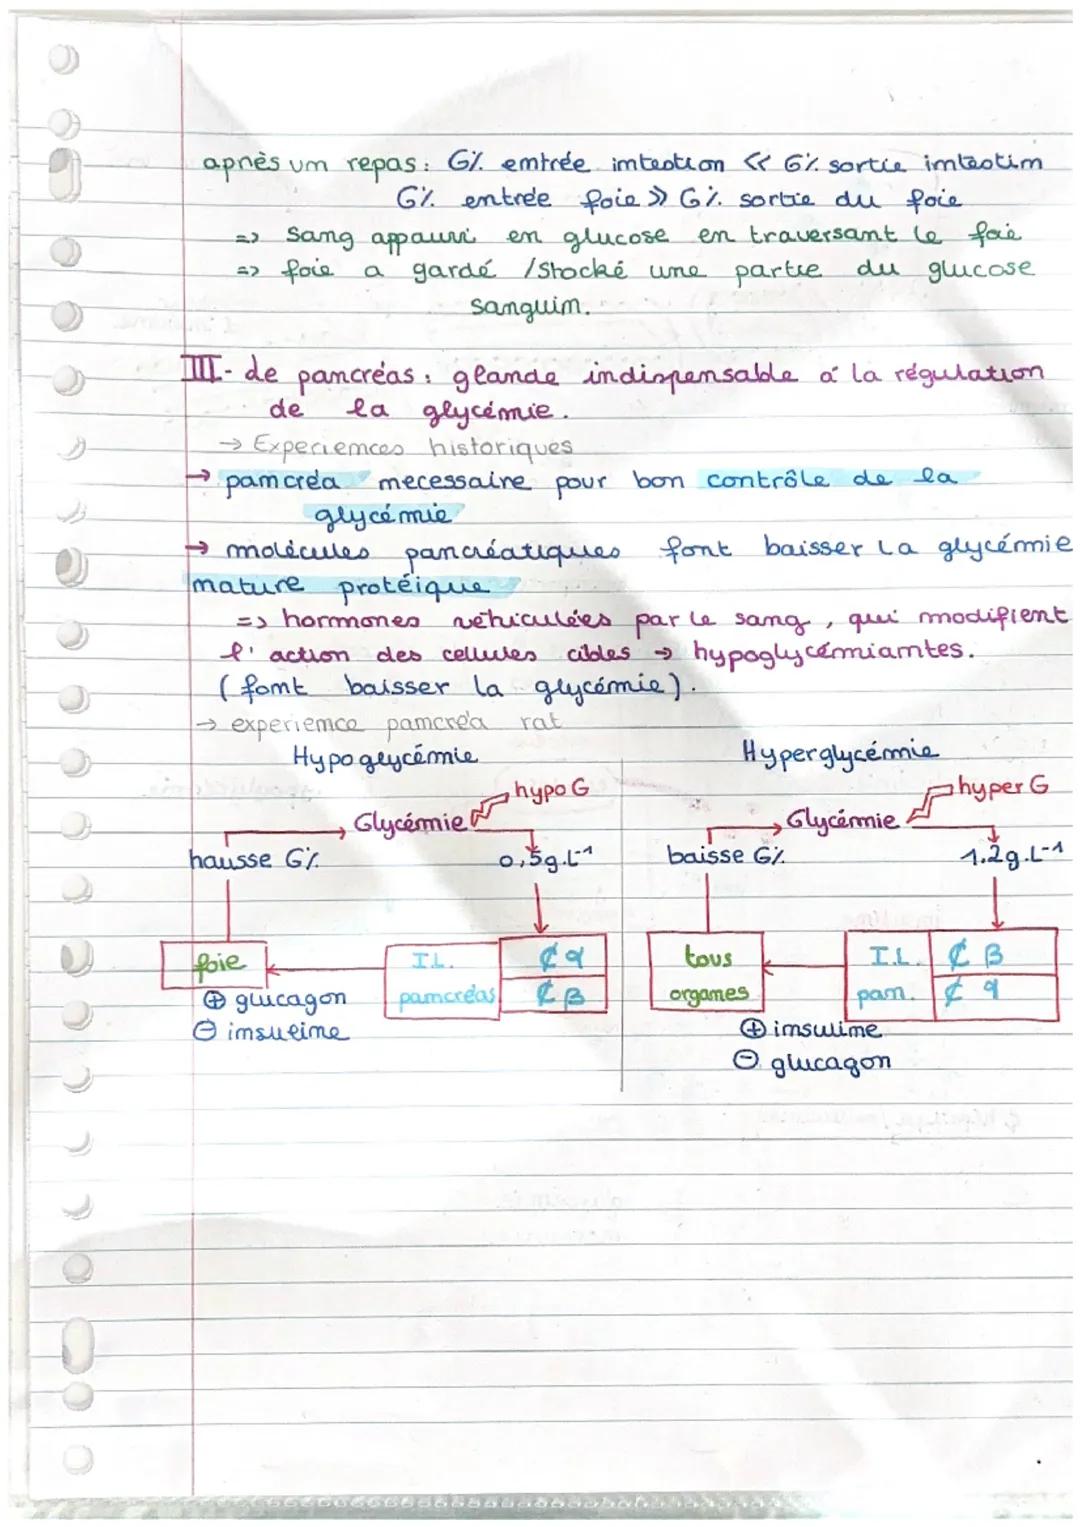 après um repas : G% emtrée imtestion << G% sortie imtestim
G% entrée foie >> G% sortie du foie
=> Sang appauvri en glucose en traversant le foie
=> foie a gardé / Stocké une partie du glucose
sanguim.
III - de pancréas : glande indispensable à la régulation
de la glycémie.
→ Experiemces historiques
→ pamcréa mecessaire pour bon contrôle de la
glycémie
→ molécules pancréatiques font baisser la glycémie
mature protéique
=> hormones véhiculées par le samg, qui modifient
l'action des cellules cibles → hypoglycémiamtes.
(fomt baisser la glycémie).
→ experiemce pamcréa rat
Hypoglycémie
Hyperglycémie
hypo G
hyper G
Glycémie
Glycémie
hausse G%
0,5g.L⁻¹
baisse G%
1.2g.L⁻¹
foie
I.L.
₵ α
tous
I.L.
₵ B
⊕ glucagon
pamcréas
₵ B
orgames
pam.
₵ α
⊖ imsulime
⊕ imsulime
⊖ glucagon